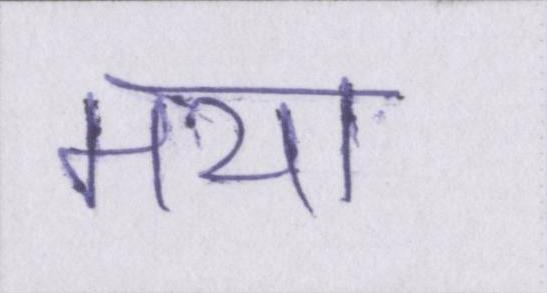 मया